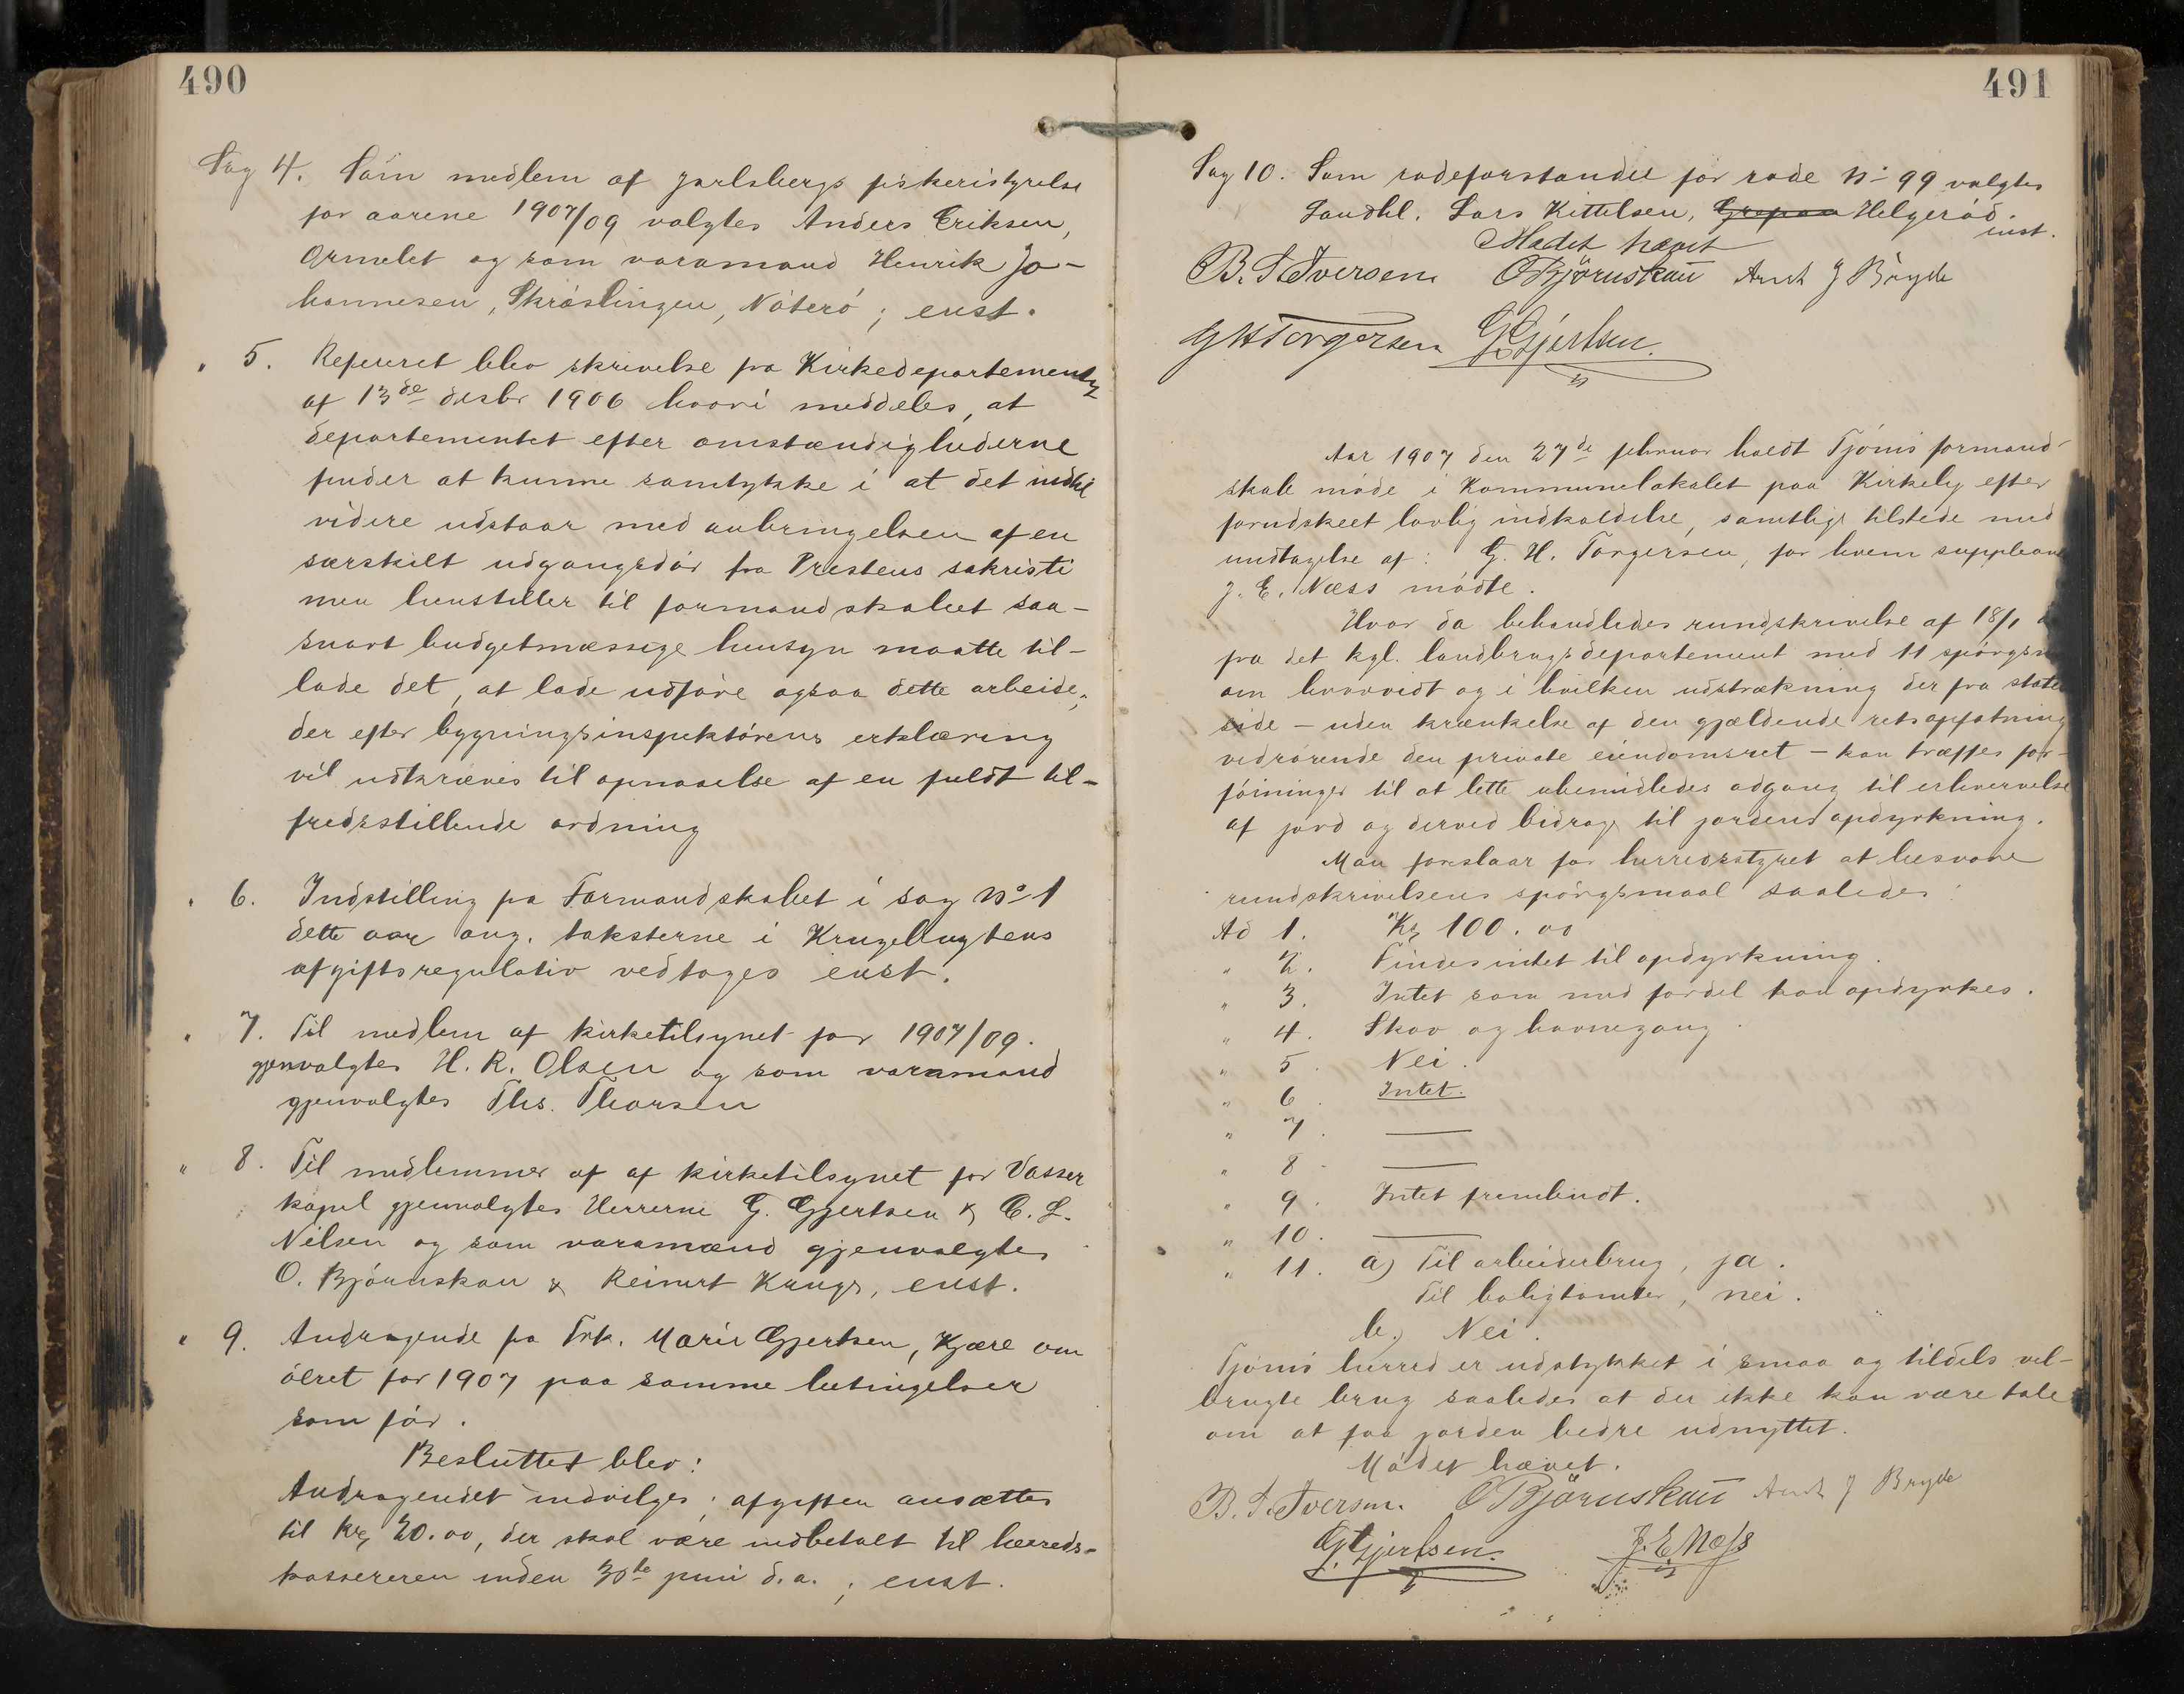 490
Sag 4. Som medlem af Jarlsbergs fiskeristyrelse
for aarene 1907/09 valgtes Anders Eriksen,
Ormelet og som varamand Henrik Jo-
hannesen, Skråslingen, Nöterö; enst.
" 5. Refereret blev skrivelse fra Kirkedepartementet
af 13de desbr 1906 hvori meddeles, at
departementet efter omstændighederne
finder at kunne samtykke i at det indtil
videre udstaar med anbringelsen af en
særskilt udgangsdör fra Prestens sakristi
men henstiller til formandskabet saa-
snart budgetmæssige hensyn maatte til-
lade det, at lade udföre ogsaa dette arbeide,
der efter bygningsinspektörens erklæring
vil udkræves til opnaaelse af en fuldt til-
fredsstillende ordning
" 6. Indstilling fra Formandskabet i sag No 1
dette aar ang. taksterne i Kragebugtens
afgiftsregulativ vedtages enst.
" 7. Til medlem af kirketilsynet for 1907/09.
gjenvalgtes H. R. Olsen og som varamand
gjenvalgtes Ths. Thorsen
" 8. Til medlemmer af af kirketilsynet for Vasser
kapel gjenvalgtes Herrerne G. Gjertsen & C. L.
Nilsen og som varamænd gjenvalgtes
O. Björnskau & Reinert Krugs, enst.
" 9. Andragende fra Frk. Marie Gjertsen, Kjære om
ölret for 1907 paa samme betingelser
som för.
Besluttet blev:
Andragendet indvilges; afgiften ansættes
til Kr 20.00, der skal være indbetalt til herreds-
kassereren inden 30te juni d.a.; enst.
491
Sag 10. Som rodeforstander for rode No 99 valgtes
Landhl. Lars Kittelsen, Grepan Helgeröd.
enst.
Mødet hævet
B. S. Iversen O Björnskau Arnt J Bryde
G H Torgersen G. Gjertsen.
Aar 1907 den 27de februar holdt Tjömö formand-
skab möde i Kommunelokalet paa Kirkeby efter
forudskeet lovlig indkaldelse, samtlige tilstede med
undtagelse af: G. H. Torgersen, for hvem suppleant
J. E. Næss mödte.
Hvor da behandledes rundskrivelse af 18/1
fra det kgl. landbrugsdepartement med 11 spörgsm
om hvorvidt og i hvilken udstrækning der fra statens
side – uden krænkelse af den gjældende retsopfatning
vedrörende den private eiendomsret – kan træffes for-
föininger til at lette ubemidledes adgang til erhvervelse
af jord og derved bidrage til jordens opdyrkning.
Man foreslaar for herredsstyret at besvare
rundskrivelsens spörgsmaal saaledes:
Ad 1. Kr 100.00
" 2. Findes intet til opdyrkning.
" 3. Intet som med fordel kan opdyrkes.
" 4. Skov og havnegang.
" 5. Nei.
" 6. Intet.
" 7. —
" 8. —
" 9. Intet frembudt.
" 10. —
" 11. a) Til arbeiderbrug, ja.
Til boligtomter, nei.
b.) Nei.
Tjömö herred er udstykket i smaa og tildels vel-
brugte brug saaledes at der ikke kan være tale
om at faa jorden bedre udnyttet.
Mödet hævet.
B. S. Iversen. O Björnskau Arnt J Bryde
G. Gjertsen. J. E. Næss